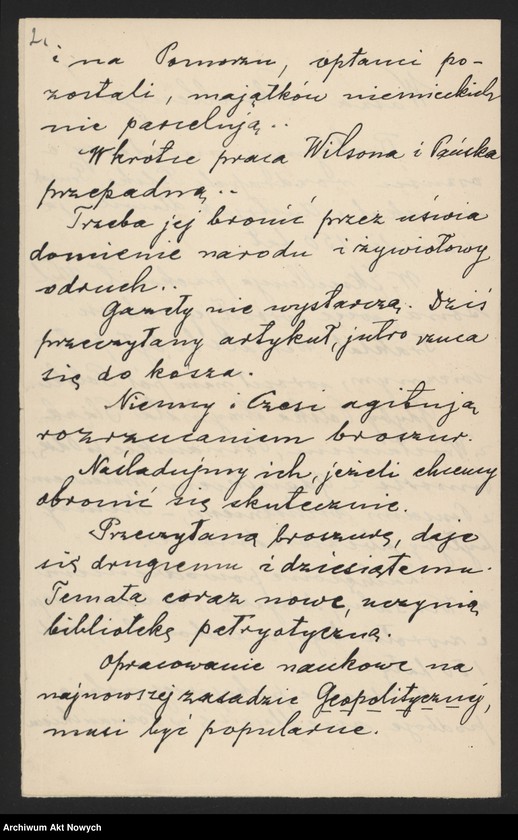 2.
i na Pomorzu, optanci po-
zostali, majątków niemieckich
nie parcelują..
Wkrótce praca Wilsona i Pańska
przepadną..
Trzeba jej bronić przez uświa
domienie narodu i żywiołowy
odruch..
Gazety nie wystarczą. Dziś
przeczytany artykuł, jutro rzuca
się do kosza.
Niemcy i Czesi agitują
rozrzucaniem broszur.
Naśladujmy ich, jeżeli chcemy
obronić się skutecznie.
Przeczytaną broszurę, daje
się drugiemu i dziesiątemu.
Temata coraz nowe, uczynią
bibliotekę patryotyczną.
Opracowanie naukowe na
najnowszej zasadzie Geopolitycznej,
musi być popularne.
Archiwum Akt Nowych